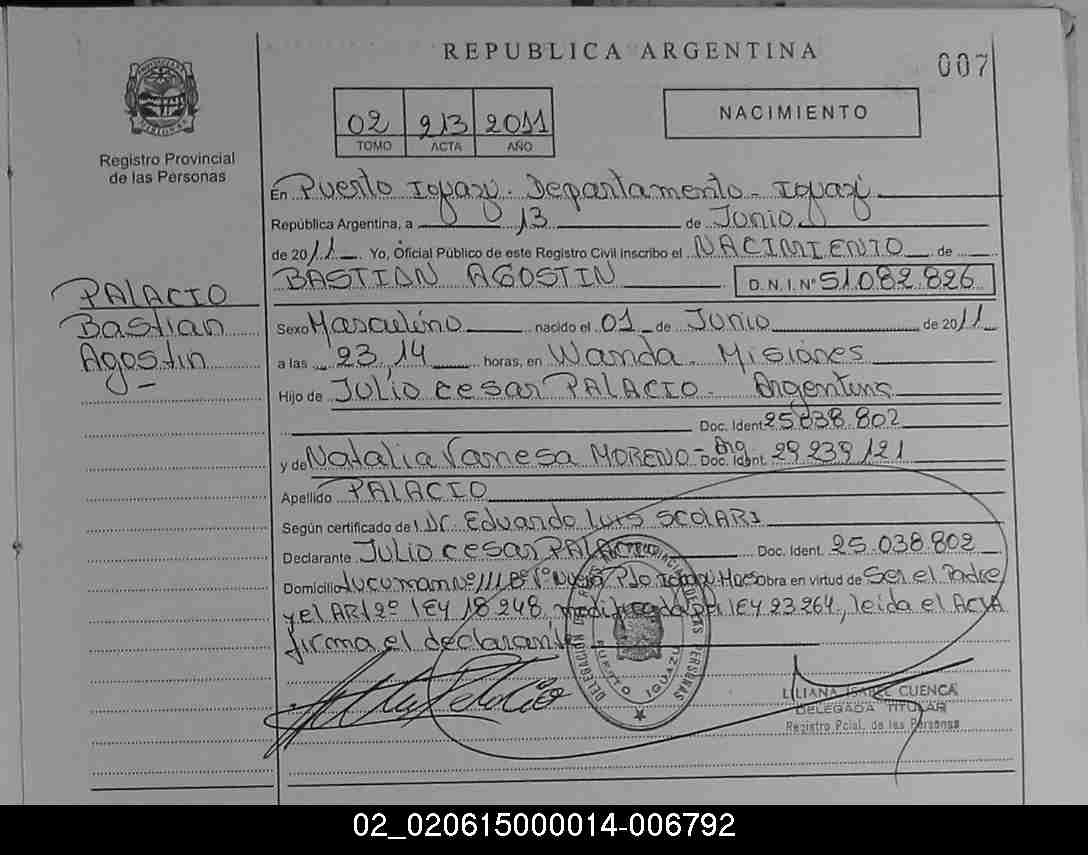 REPUBLICA ARGENTINA
007
PROVINCIA DE MISIONES
Registro Provincial
de las Personas
02 213 2011
TOMO ACTA AÑO
NACIMIENTO
En Puerto Iguazú. Departamento - Iguazú
República Argentina, a 13 de Junio
de 2011. Yo, Oficial Público de este Registro Civil Inscribo el NACIMIENTO de
BASTIAN AGOSTIN D.N.I.Nº 51.082.826
PALACIO
Bastian
Agostin
Sexo Masculino nacido el 01 de Junio de 2011
a las 23,14 horas, en Wanda - Misiones
Hijo de Julio Cesar PALACIO - Argentino
Doc. Ident. 25.038.802
y de Natalia Vanesa MORENO - Arg Doc. Ident. 29 239 121
Apellido PALACIO
Según certificado de Dr. Eduardo Luis SCOLARI
Declarante Julio Cesar PALACIO Doc. Ident. 25.038.802
Domicilio Tucuman Nº 111 Bº obra en virtud de Ser el Padre
y el ARt 2º lEY 18.248, modificada por lEY 23 264, leida el ActA
firma el declarante
DELEGACION DE REG. PROVINCIAL DE LAS PERSONAS
PUERTO IGUAZU
LILIANA ISABEL CUENCA
DELEGADA TITULAR
Registro Pcial. de las Personas
02_020615000014-006792